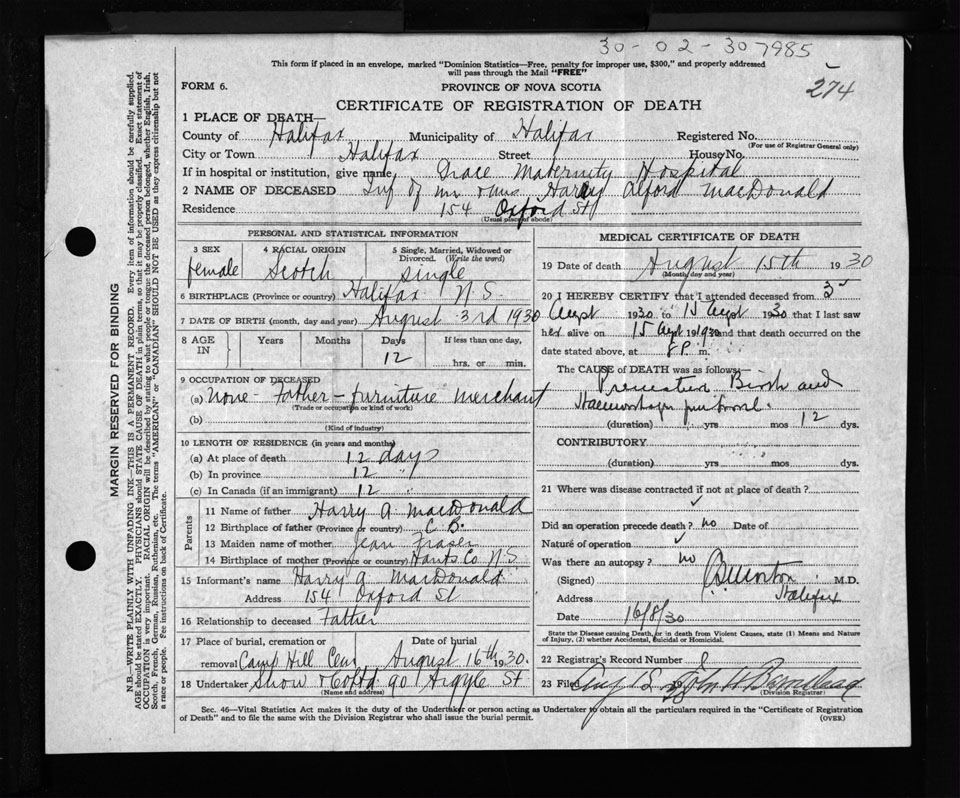 30-02-307985
274
This form if placed in an envelope, marked "Dominion Statistics—Free, penalty for improper use, $300," and properly addressed
will pass through the Mail "FREE"
FORM 6.
PROVINCE OF NOVA SCOTIA
CERTIFICATE OF REGISTRATION OF DEATH
1 PLACE OF DEATH—
County of Halifax Municipality of Halifax Registered No.
(For use of Registrar General only)
City or Town Halifax Street House No.
If in hospital or institution, give name, Grace Maternity Hospital
2 NAME OF DECEASED Inf of Mr & Mrs Harry Alford MacDonald
Residence 154 Oxford St
(Usual place of abode)
PERSONAL AND STATISTICAL INFORMATION
3 SEX female
4 RACIAL ORIGIN Scotch
5 Single, Married, Widowed or Divorced. (Write the word) single
6 BIRTHPLACE (Province or country) Halifax N.S.
7 DATE OF BIRTH (month, day and year) August 3rd 1930
8 AGE IN Years Months Days 12 If less than one day, hrs. or min.
9 OCCUPATION OF DECEASED
(a) None - Father - furniture merchant
(Trade or occupation or kind of work)
(b)
(Kind of industry)
10 LENGTH OF RESIDENCE (in years and months)
(a) At place of death 12 days
(b) In province 12 "
(c) In Canada (if an immigrant) 12 "
Parents
11 Name of father Harry A. MacDonald
12 Birthplace of father (Province or country) C.B.
13 Maiden name of mother Jean Fraser
14 Birthplace of mother (Province or country) Hants Co N.S.
15 Informant's name Harry A. MacDonald
Address 154 Oxford St
16 Relationship to deceased Father
17 Place of burial, cremation or removal Camp Hill Cem Date of burial August 16th 1930.
18 Undertaker Snow & Co Ltd 90 Argyle St
(Name and address)
MEDICAL CERTIFICATE OF DEATH
19 Date of death August 15th 1930
(Month, day and year)
20 I HEREBY CERTIFY that I attended deceased from 3
Augt 1930 to 15 Augt 1930 that I last saw
her alive on 15 Augt 1930 and that death occurred on the
date stated above, at 8 P. m.
The CAUSE of DEATH was as follows:—
Premature Birth and
Haemorrhagia
(duration) yrs mos 12 dys.
CONTRIBUTORY
(duration) yrs mos dys.
21 Where was disease contracted if not at place of death?
Did an operation precede death? no Date of
Nature of operation
Was there an autopsy? no
(Signed) M.D.
Address Halifax
Date 16/8/30
State the Disease causing Death, or in death from Violent Causes, state (1) Means and Nature
of Injury, (2) whether Accidental, Suicidal or Homicidal.
22 Registrar's Record Number
23 Filed Aug 15 19 John H.
(Division Registrar)
Sec. 46—Vital Statistics Act makes it the duty of the Undertaker or person acting as Undertaker to obtain all the particulars required in the "Certificate of Registration
of Death" and to file the same with the Division Registrar who shall issue the burial permit.
(OVER)
MARGIN RESERVED FOR BINDING
N.B.—WRITE PLAINLY WITH UNFADING INK—THIS IS A PERMANENT RECORD. Every item of information should be carefully supplied.
AGE should be stated EXACTLY. PHYSICIANS should STATE CAUSE OF DEATH in plain terms, so that it may be properly classified. Exact statement of
OCCUPATION is very important. RACIAL ORIGIN will be described by stating to what people or tongue the deceased person belonged, whether English, Irish,
Scotch, French, German, Russian, Ruthenian, etc. The terms "AMERICAN" or "CANADIAN" SHOULD NOT BE USED as they express citizenship but not
a race or people. See instructions on back of Certificate.